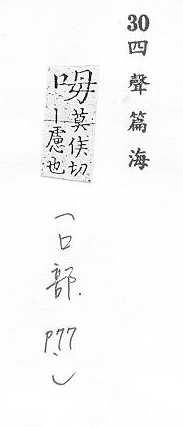 30 四聲篇海
呣 莫侯切丨慮也
(口部. P.77)